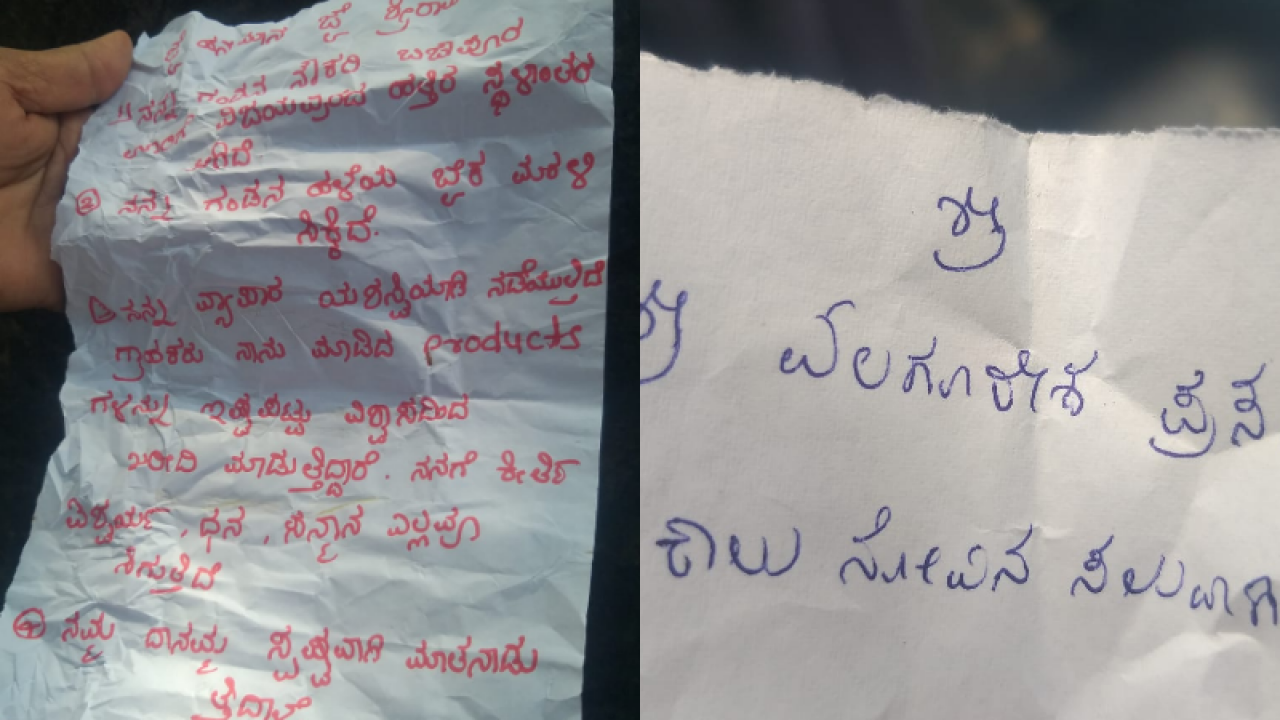 ಜೈ ಹನುಮಾನ ಜೈ ಶ್ರೀರಾಮ
ನನ್ನ ಗಂಡನ ನೌಕರಿ
ವಿಜಯಪುರದ ಹತ್ತಿರ ಸ್ಥಳಾಂತರ
ಆಗಿದೆ
② ನನ್ನ ಗಂಡನ ಹಳೆಯ ಬೈಕ ಮರಳಿ
ಸಿಕ್ಕಿದೆ.
ನನ್ನ ವ್ಯಾಪಾರ ಯಶಸ್ವಿಯಾಗಿ ನಡೆಯುತ್ತಿದೆ
ಗ್ರಾಹಕರು ನಾನು ಮಾಡಿದ products
ಗಳನ್ನು ಇಷ್ಟಪಟ್ಟು ವಿಶ್ವಾಸದಿಂದ
ಖರೀದಿ ಮಾಡುತ್ತಿದ್ದಾರೆ. ನನಗೆ ಕೀರ್ತಿ
ಐಶ್ವರ್ಯ, ಧನ, ಸನ್ಮಾನ ಎಲ್ಲವೂ
ಸಿಗುತ್ತಿದೆ
④ ನಮ್ಮ ದಾನಮ್ಮ ಸ್ಪಷ್ಟವಾಗಿ ಮಾತನಾಡು
ತ್ತಿದಾಳೆ
ಶ್ರೀ
ಶ್ರೀ ಯಲಗೂರೇಶ ಪ್ರಸ
ಕಾಲು ನೋವಿನ ಸಲುವಾಗಿ